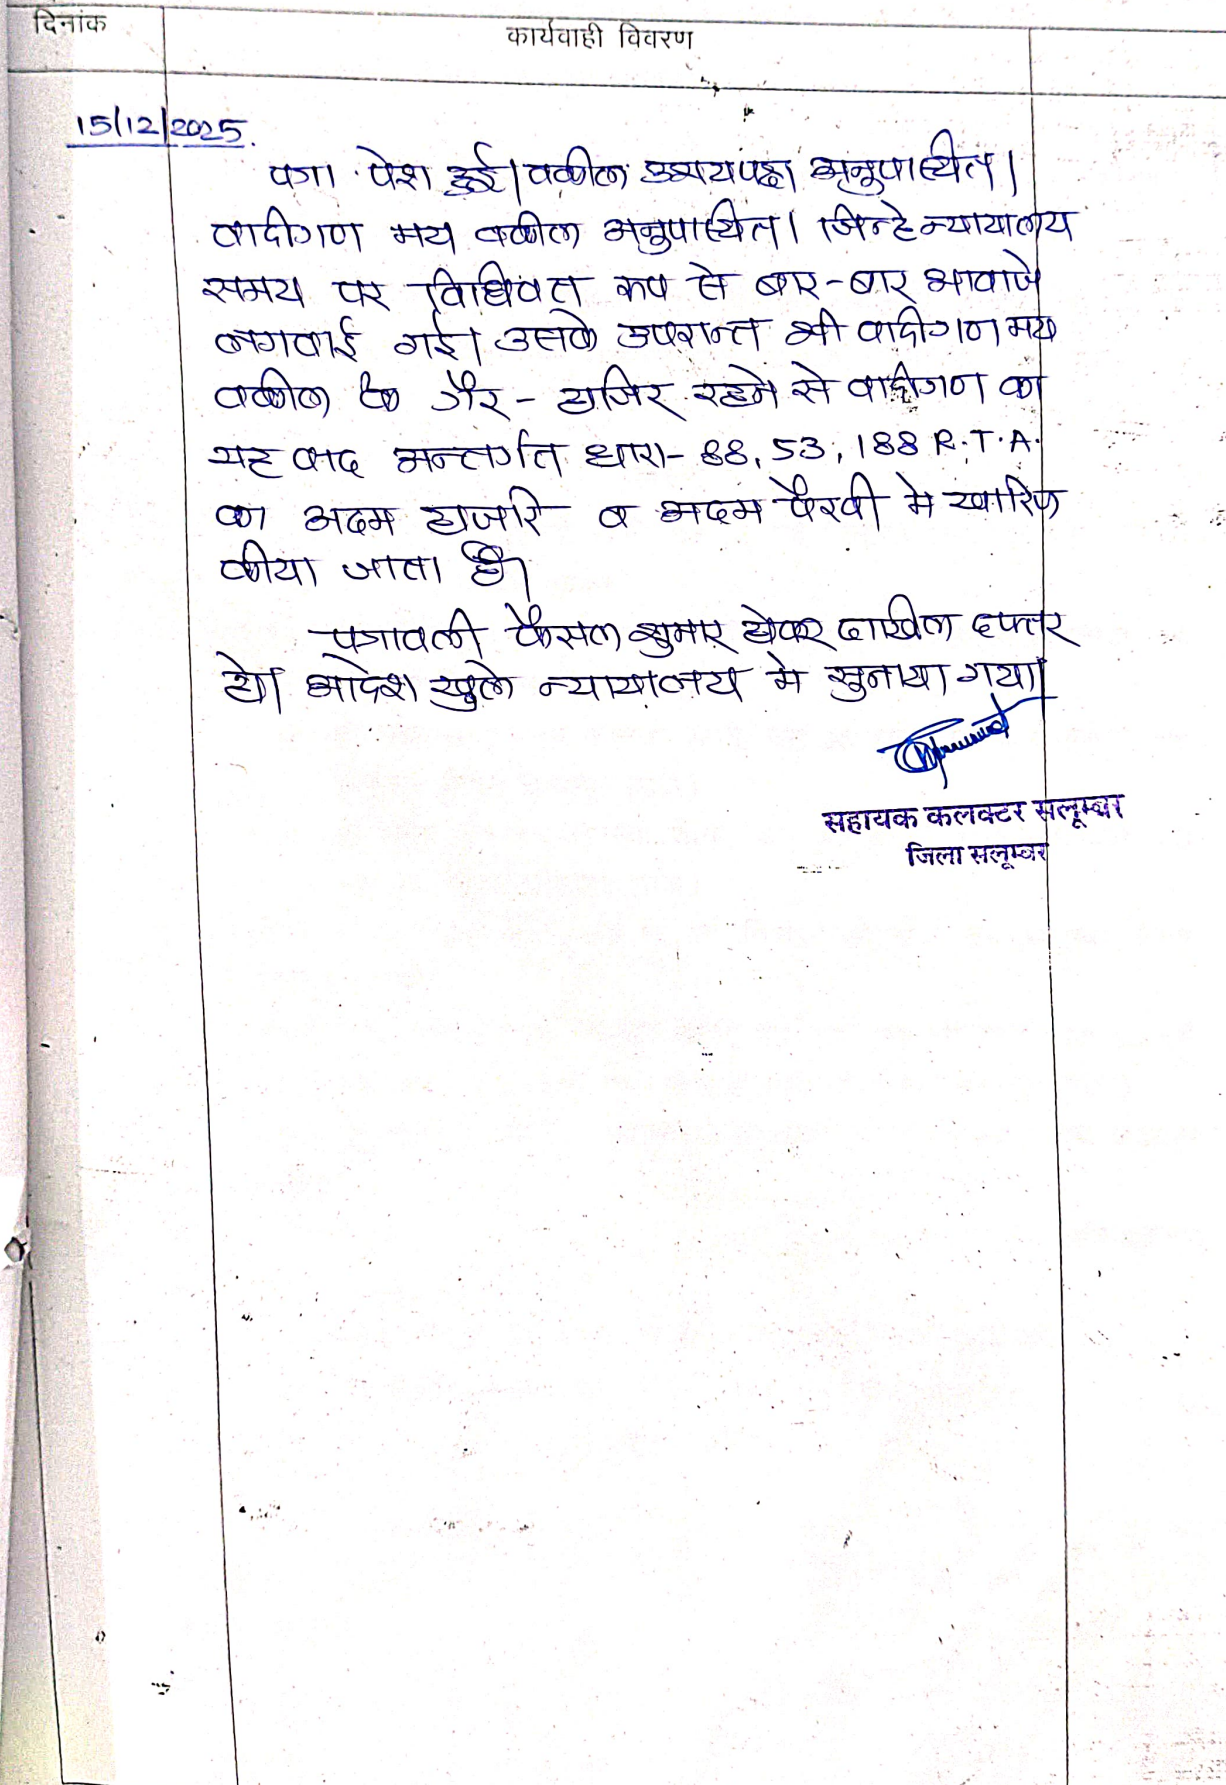 दिनांक
कार्यवाही विवरण
15/12/2025.
पत्रा. पेश हुई। वकील उभयपक्ष अनुपस्थित।
वादीगण मय वकील अनुपस्थित। जिन्हे न्यायालय
समय पर विधिवत रूप से बार-बार आवाजे
लगवाई गई। उसके उपरान्त भी वादीगण मय
वकील के गैर-हाजिर रहने से वादीगण का
यह वाद अन्तर्गत धारा- 88, 53, 188 R.T.A.
का अदम हाजरि व अदम पैरवी मे खारिज
कीया जाता है।
पत्रावली फैसल शुमार होकर दाखिल दफ्तर
हो। आदेश खुले न्यायालय मे सुनाया गया।
सहायक कलक्टर सलूम्बर
जिला सलूम्बर